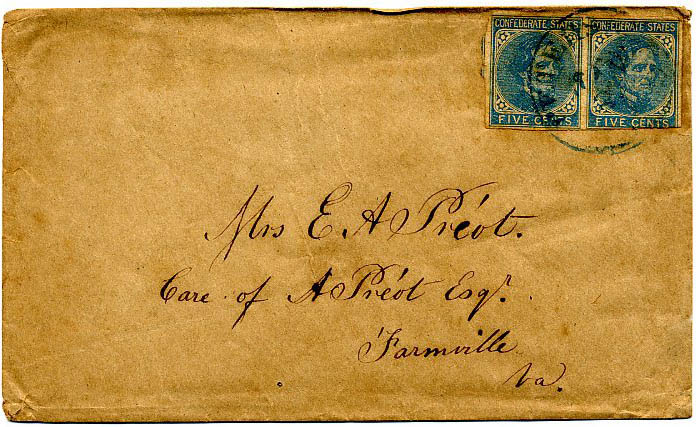 CONFEDERATE STATES CONFEDERATE STATES
FIVE CENTS FIVE CENTS
Mrs E. A Préot.
Care of A Préot Esqr.
Farmville
Va.